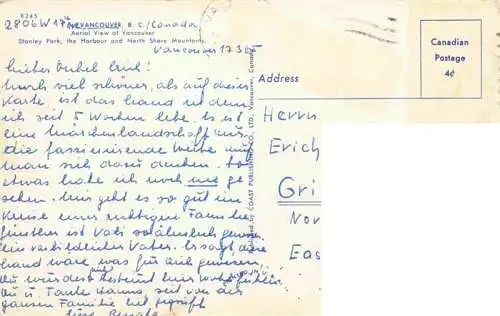 K245
2806 W 17th
VANCOUVER, B. C./Canada
Aerial View of Vancouver
Stanley Park, the Harbour and North Shore Mountains.
Vancouver 17.3.
Lieber Onkel Erich!
Noch viel schöner, als auf dieser
Karte ist das Land in dem
ich seit 5 Wochen lebe. Es ist
eine Märchenlandschaft
die faszinierende Weite muß
man sich dazu denken. So
etwas habe ich noch nie ge
sehen. Mir geht es so gut im
Kreise einer richtigen Familie
ist Vati
ein vorbildlicher Vater. Er sagt, das
Land wäre was für Dich gewesen,
Du würdest Dich bestimmt hier wohl fühlen.
Du u. Tante Hanna, seid von der
ganzen Familie lieb gegrüßt
Eure Renate
Published by COAST PUBLISHING CO., LTD., Vancouver, Canada
Address
Canadian
Postage
4¢
Herrn
Erich
Gri
Nor
Eas